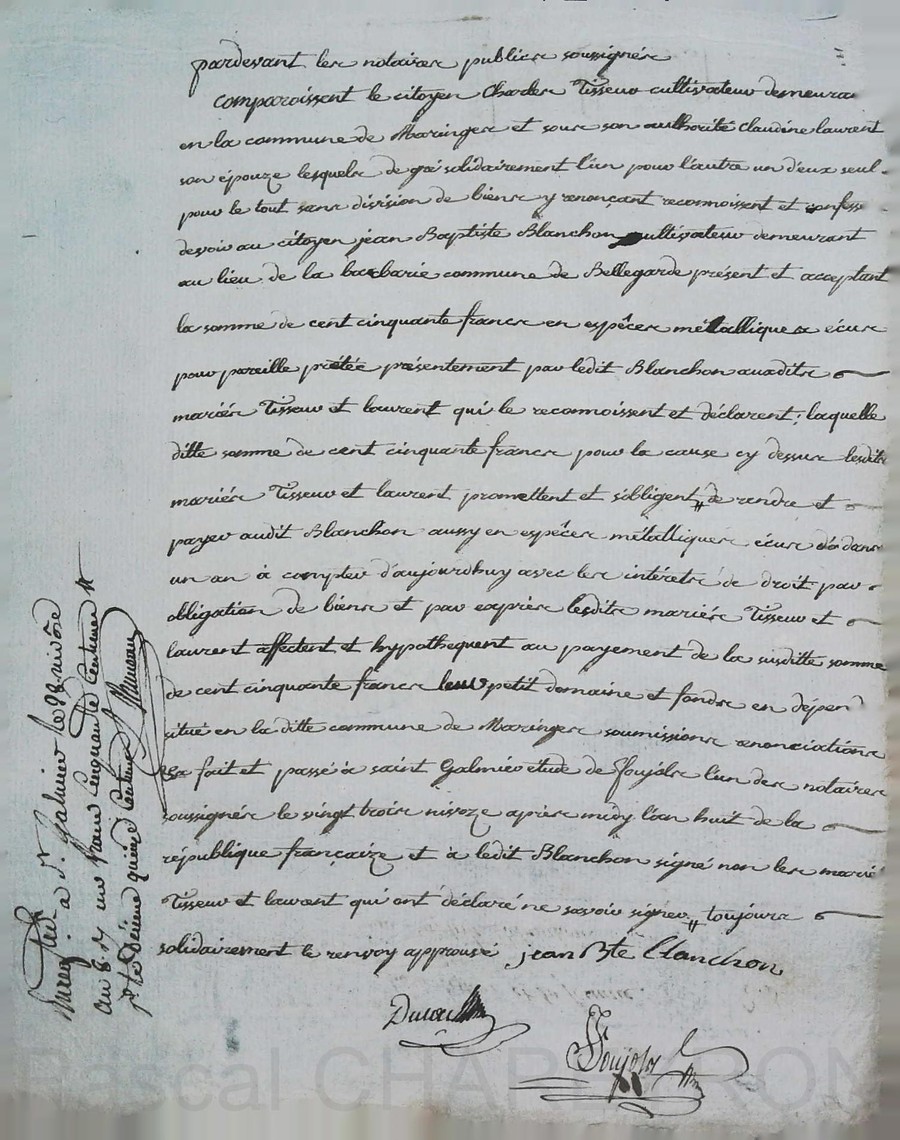 pardevant les notaires publics soussignés
comparoissent le citoyen Charles Tisseur cultivateur demeura
en la commune de Maringes et sous son authorité claudine laurent
son épouze lesquels de gré solidairement l'un pour l'autre un d'eux seul
pour le tout sans division de biens y renonçant reconnoissent et confess
devoir au citoyen jean Baptiste Blanchon cultivateur demeurant
au lieu de la barbarie commune de Bellegarde présent et acceptant
la somme de cent cinquante francs en espêces métalliques écus
pour pareille prêtée présentement par ledit Blanchon auxdits
mariés Tisseur et laurent qui le reconnoissent et déclarent; laquelle
ditte somme de cent cinquante francs pour la cause cy dessus lesdits
mariés Tisseur et laurent promettent et s'obligent # de rendre et
payer audit Blanchon aussy en espêces métalliques écus dans
un an à compter d'aujourdhuy avec les intérêts de droit par
obligation de biens et par exprès lesdits mariés Tisseur et
laurent affectent et hypothequent au payement de la susditte somme
de cent cinquante francs leur petit domaine et fonds en dépend
situé en la ditte commune de Maringes soumissions renonciations
fait et passé à saint Galmier étude de foujols l'un des notaires
soussignés le vingt trois nivoze après midy l'an huit de la
république françaize et à ledit Blanchon signé non les marié
Tisseur et laurent qui ont déclaré ne savoir signer # toujours
solidairement le renvoy approuvé jean Bte blanchon
Foujols
Enregistré a St. Galmier le 28 nivôse
an 8. R un franc cinquante centimes
pr le dixième quinze centimes
Pascal CHAPERRON